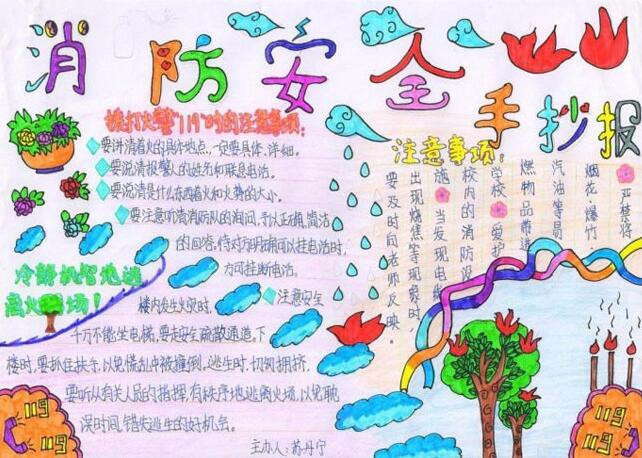 消防安全手抄报
拨打火警"119"时的注意事项:
要讲清着火的具体地点,一定要具体、详细。
要说清报警人的姓名和联系电话。
要说清是什么东西着火和火势的大小。
要注意听清消防队的询问,予以正确,简洁
的回答,待对方明确可以挂电话时,
方可挂断电话。
冷静机智地逃
离火现场!
注意安全
楼内发生火灾时,
千万不能坐电梯,要走安全疏散通道。下
楼时,要抓住扶手,以免慌乱中被撞倒。逃生时,切勿拥挤,
要听从有关人员的指挥,有秩序地逃离火场,以免耽
误时间,错失逃生的好机会。
主办人:苏丹宁
注意事项:
严禁将
烟花、爆竹、
汽油等易
燃物品带进
学校 爱护
校内的消防设
施 当发现电线
出现烧焦等现象时,
要及时向老师反映。
119
119
119
119